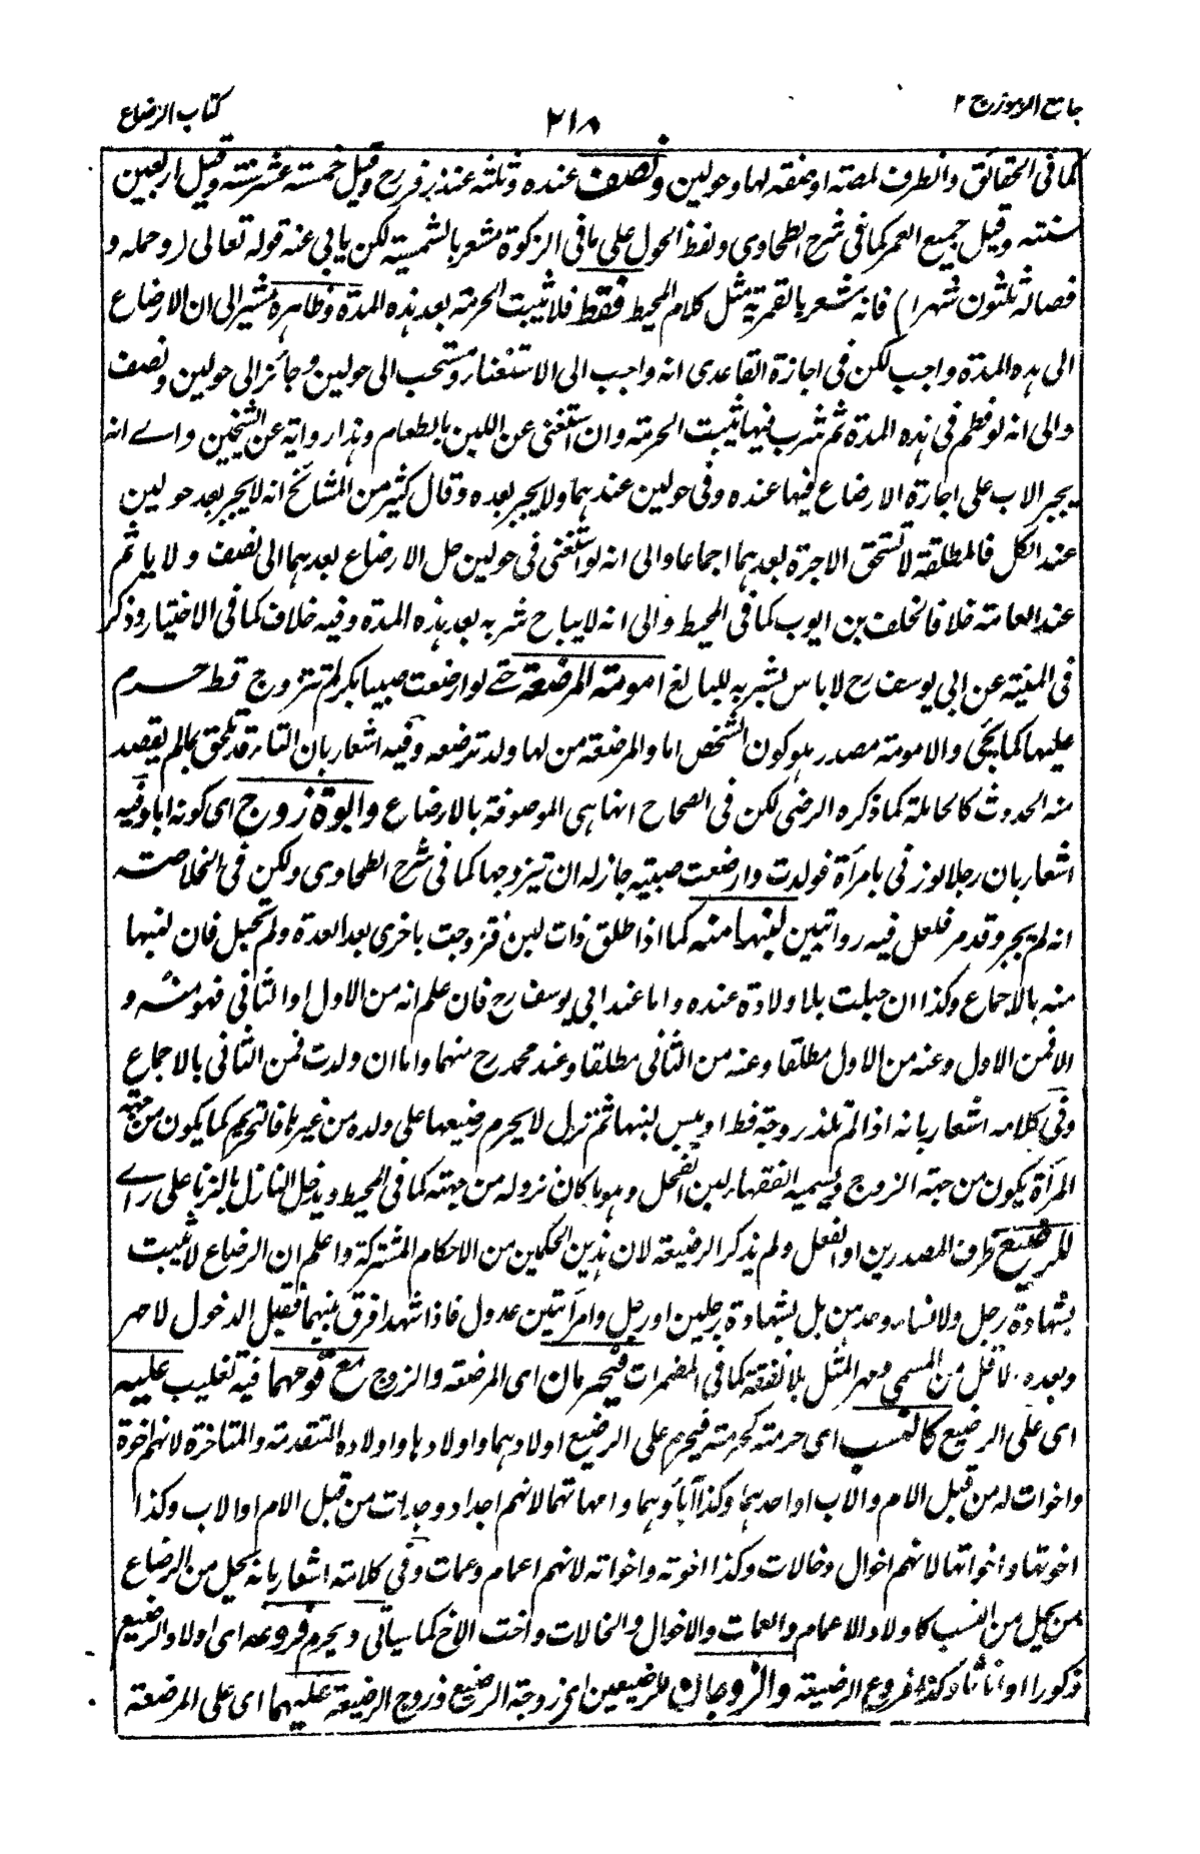 جامع الرموز ج ٢
٢١٨
كتاب الرضاع
كما فى الحقائق والظرف لمصته او صفقه لها وحولين ونصف عنده وثلثة عند زفر رح وقيل خمسة عشر سنته وقيل اربعين
سنته وقيل جميع العمر كما فى شرح الطحاوى ولفظ الحول على ما فى الزكوة مشعر بالشمسية لكن يابى عنه قوله تعالى (وحمله و
فصاله ثلثون شهرا) فانه مشعر بالقمرية مثل كلام المحيط فقط فلا يثبت الحرمة بعد هذه المدة وظاهره مشير الى ان الارضاع
الى هذه المدة واجب لكن فى اجازة القاعدى انه واجب الى الاستغناء ومستحب الى حولين وجائز الى حولين ونصف
والى انه لو فطم فى هذه المدة ثم شرب فيها يثبت الحرمة وان استغنى عن اللبن بالطعام وهذا رواية عن الشيخين والے انه
يجبر الاب على اجازة الارضاع فيها عنده وفى حولين عندهما ولا يجبر بعده وقال كثير من المشائخ انه لا يجبر بعد حولين
عند الكل فالمطلقة لا تستحق الاجرة بعدهما اجماعا والى انه لو استغنى فى حولين حل الارضاع بعدهما الى نصف ولا ياثم
عند العامة خلافا لخلف بن ايوب كما فى المحيط والى انه لا يباح شربه بعد هذه المدة وفيه خلاف كما فى الاختيار وذكر
فى المنية عن ابى يوسف رح لا باس بشربه للبالغ امومة المرضعة حتے لو ارضعت صبيا بكر لم تتزوج قط حرم
عليها كما يجئ والامومة مصدر هو كون الشخص اما والمرضعة من لها ولد ترضعه وفيه اشعار بان التاء قد تلحق بما لم يقصد
منه الحدوث كالحاملة كما ذكره الرضى لكن فى الصحاح انها هى الموصوفة بالارضاع وابوة زوج اى كونه ابا وفيه
اشعار بان رجلا لو زنى بامرأة فولدت وارضعت صبية جاز له ان يتزوجها كما فى شرح الطحاوى ولكن فى الخلاصته
انه لم يجز وقد مر فلعل فيه روايتين لبنها منه كما اذا طلق ذات لبن فتزوجت باخرى بعد العدة ولم تحبل فان لبنها
منه بالاجماع وكذا ان حبلت بلا ولادة عنده واما عند ابى يوسف رح فان علم انه من الاول او الثانى فهو منه و
الا فمن الاول وعنه من الاول مطلقا وعنه من الثانى مطلقا وعند محمد رح منهما واما ان ولدت فمن الثانى بالاجماع
وفى كلامه اشعار بانه اذا لم تلد زوجة قط او يبس لبنها ثم نزل لا يحرم رضيعها على ولده من غيرها فالتحريم كما يكون من جهة
المرأة يكون من جهة الزوج ويسميه الفقهاء لبن الفحل وهو ما كان نزوله من جهته كما فى المحيط ويدخل النازل بالزنا على راے
للرضيع ظرف المصدرين او الفعل ولم يذكر الرضيعة لان هذين الحكمين من الاحكام المشتركة واعلم ان الرضاع لا يثبت
بشهادة رجل ولا نساء وحدهن بل بشهادة رجلين او رجل وامرأتين عدول فاذا شهدا فرق بينهما فقبل الدخول لا مهر
وبعده لاقل من المسمى ومهر المثل بلا نفقة كما فى المضمرات فيحرمان اى المرضعة والزوج مع قومهما فيه تغليب عليه
اى على الرضيع كالنسب اى حرمته كحرمته فيحرم على الرضيع اولادهما واولادها واولاده المتقدمة والمتاخرة لانهم اخوة
واخوات له من قبل الام والاب او احدهما وكذا آباؤهما وامهاتهما لانهم اجداد وجدات من قبل الام او الاب وكذا
اخوتها واخواتها لانهم اخوال وخالات وكذا اخوته واخواته لانهم اعمام وعمات وفى كلامه اشعار بانه يحل من الرضاع
من يحل من النسب كاولاد الاعمام والعمات والاخوال والخالات واخت الاخ كما سياتى ويحرم فروعه اى اولاد الرضيع
ذكورا او اناثا وكذا فروع الرضيعة والزوجان للرضيعين اى زوجة الرضيع وزوج الرضيعة عليهما اى على المرضعة